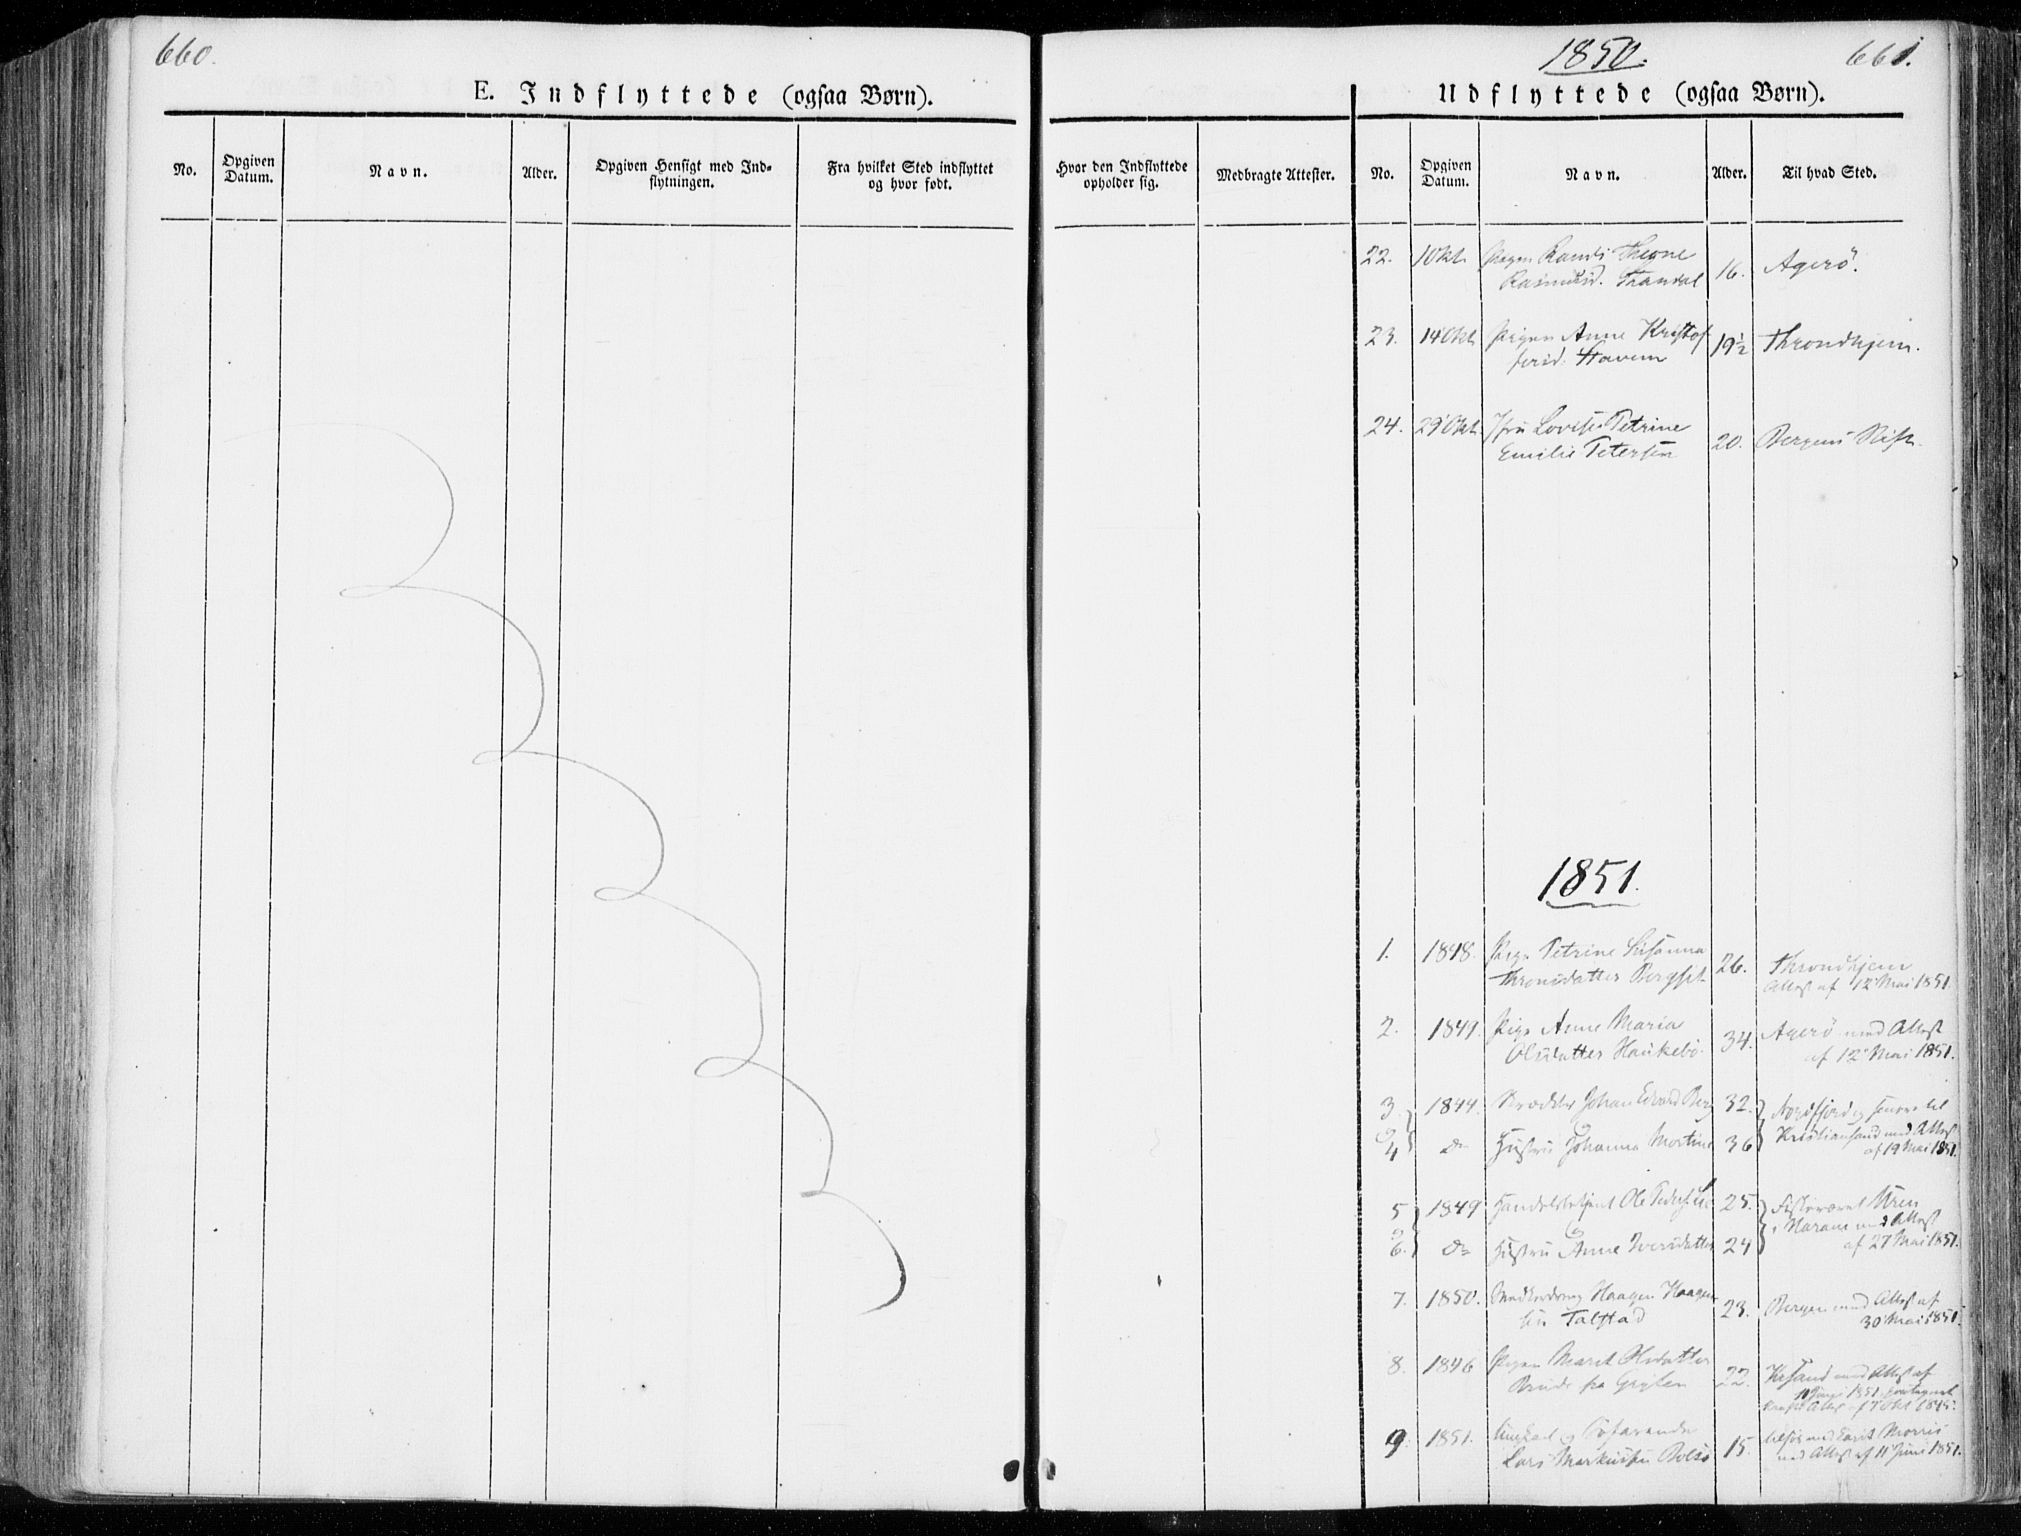 660.
E. Indflyttede (ogsaa Børn).
No.
Opgiven Datum.
Navn.
Alder.
Opgiven Hensigt med Ind-
flytningen.
Fra hvilket Sted indflyttet
og hvor født.
1850.
661.
Udflyttede (ogsaa Børn).
Hvor den Indflyttede
opholder sig.
Medbragte Attester.
No.
Opgiven Datum.
Navn.
Alder.
Til hvad Sted.
22. 10 Okt. Pigen Randi
Rasmusd. 16. Agerö.
23. 14 Okt. Pigen Anne Kristof
fersd. 19½ Throndhjem.
24. 29 Okt. Jfru Petrine
Emilie Petersen 20. Bergens Stift.
1851.
1. 1848. Pige Petrine Susanna
Thronsdatter 26. Throndhjem
Attest af 12 Mai 1851.
2. 1849. Pige Anne Maria
Olsdatter Haukebö. 34. Agerö med Attest
af 12 Mai 1851.
3. 1844. Johan Edvard Berg 32. Nordfjord og senere til
og
4 do Hustru Johanna Martine 36 Kristiansand med Attest
af 19 Mai 1851.
5 1849 Handelsbetjent Ole 25.
og
6. do Hustru Anne Iversdatter 24 i Haram med Attest
af 27 Mai 1851.
7. 1850. Haagen Haagen
sen Talstad 23. Bergen med Attest af
30 Mai 1851.
8. 1846 Pigen Marit Olsdatter
fra Gryten 22. Krsand med Attest af
1851
1845.
9. 1851. Ungkarl og Söfarende
Lars Markussen Bolsö 15. Morris
med Attest af 11 Juni 1851.